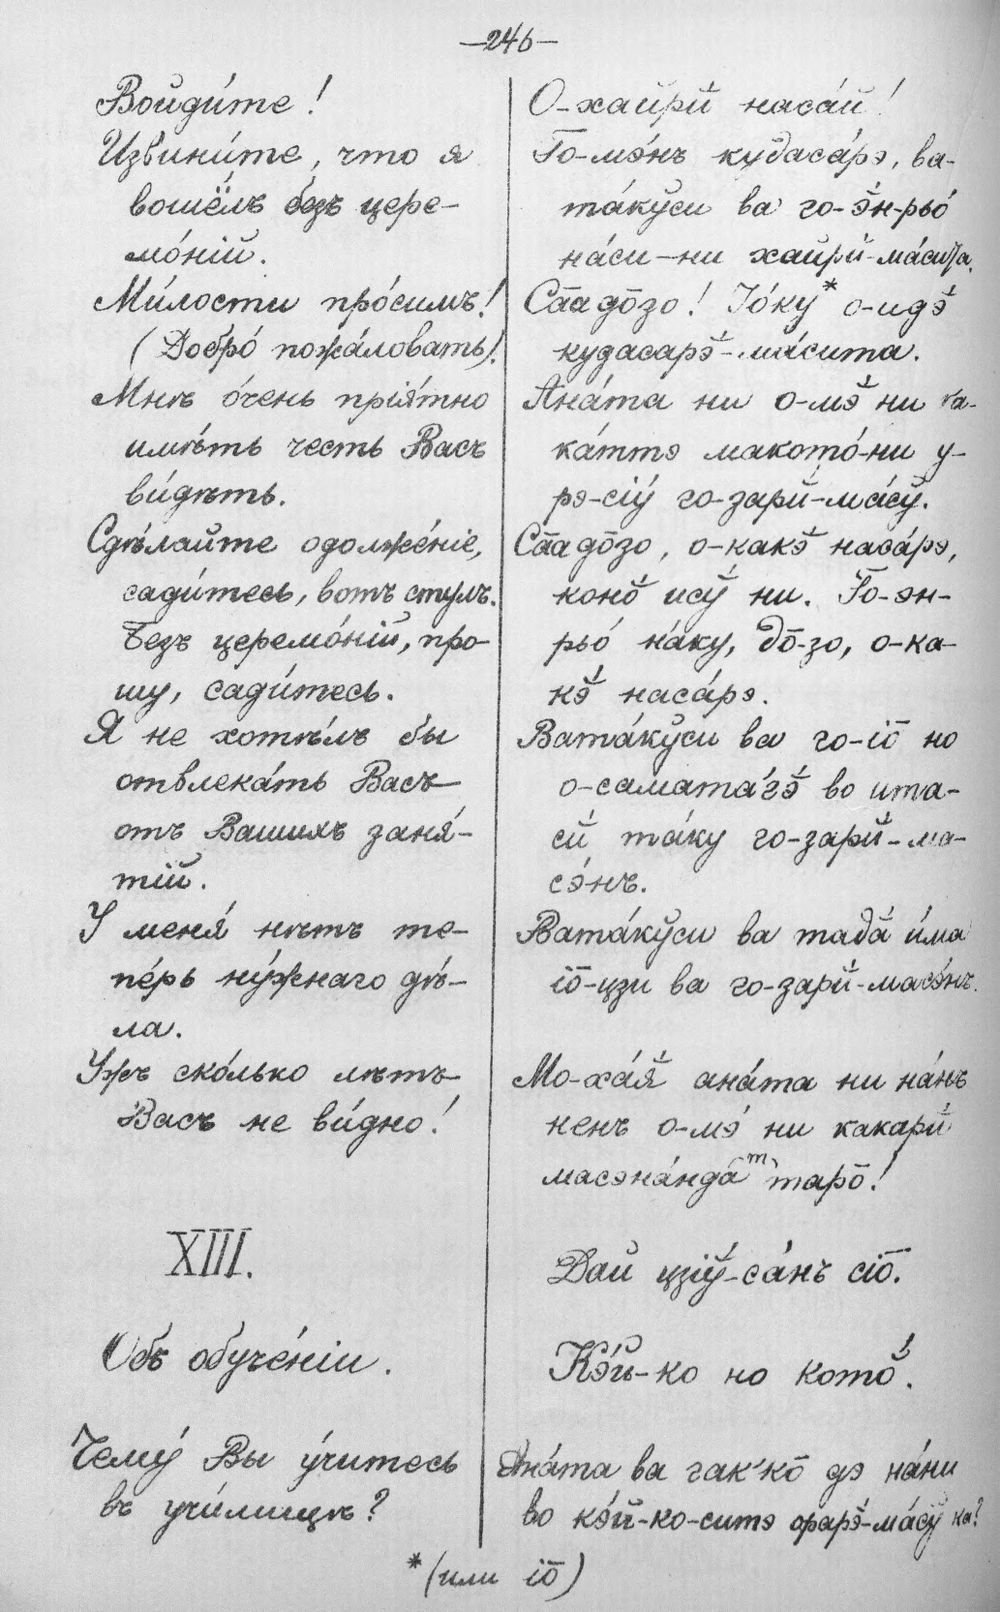 —246—
Войди́те!
Извини́те, что я
вошёлъ безъ цере-
мо́ній.
Ми́лости про́симъ!
(Добро́ пожа́ловать).
Мнѣ о́чень прія́тно
имѣ́ть честь Васъ
ви́дѣть.
Сдѣ́лайте одолже́ніе,
сади́тесь, вотъ стулъ.
Безъ церемо́ній, про-
шу, сади́тесь.
Я не хотѣ́лъ бы
отвлека́ть Васъ
отъ Вашихъ заня́-
тій.
У меня́ нѣтъ те-
пе́рь ну́жнаго дѣ́-
ла.
Ужъ ско́лько лѣтъ
Васъ не ви́дно!
XIII.
Объ обуче́ніи.
Чему́ Вы у́читесь
въ учи́лищѣ?
О-хайрӣ наса́й!
Го-мэ́нъ кудаса́рэ, ва-
та́кўси ва го-э́н-рьо́
на́си-ни хайри́-ма́сита.
Са̄а до̄зо! Іо́ку* о-идэ̆́
кудасарэ̆́-ма́сита.
Ана́та ни о-мэ̆́ ни ка-
ка́ттэ макото́-ни у-
рэ-сіу́ го-зари́-ма́сў.
Са̄а до̄зо, о-какэ̆́ наса́рэ,
коно̆́ исў́ ни. Го-эн-
рьо́ на́ку, до̄-зо, о-ка-
кэ̆́ наса́рэ.
Вата́кўси ва го-іо̄ но
о-самата́гэ̆́ во ита-
си́ та́ку го-зари́-ма-
сэ́нъ.
Вата́кўси ва тадӑ́ и́ма
іо̄-цзи ва го-зари́-масэ́нъ.
Мо-ха́я̆ ана́та ни на́нъ
ненъ о-мэ́ ни какари́
масэна́нда(т)таро̄!
Дай цзіў́-са́нъ сіо̄.
Кэ́й-ко но кото̆́.
Ана́та ва гак'ко̄ дэ на́ни
во кэ́й-ко-ситэ орарэ̆́-ма́сў ка?
*(или іо̄)